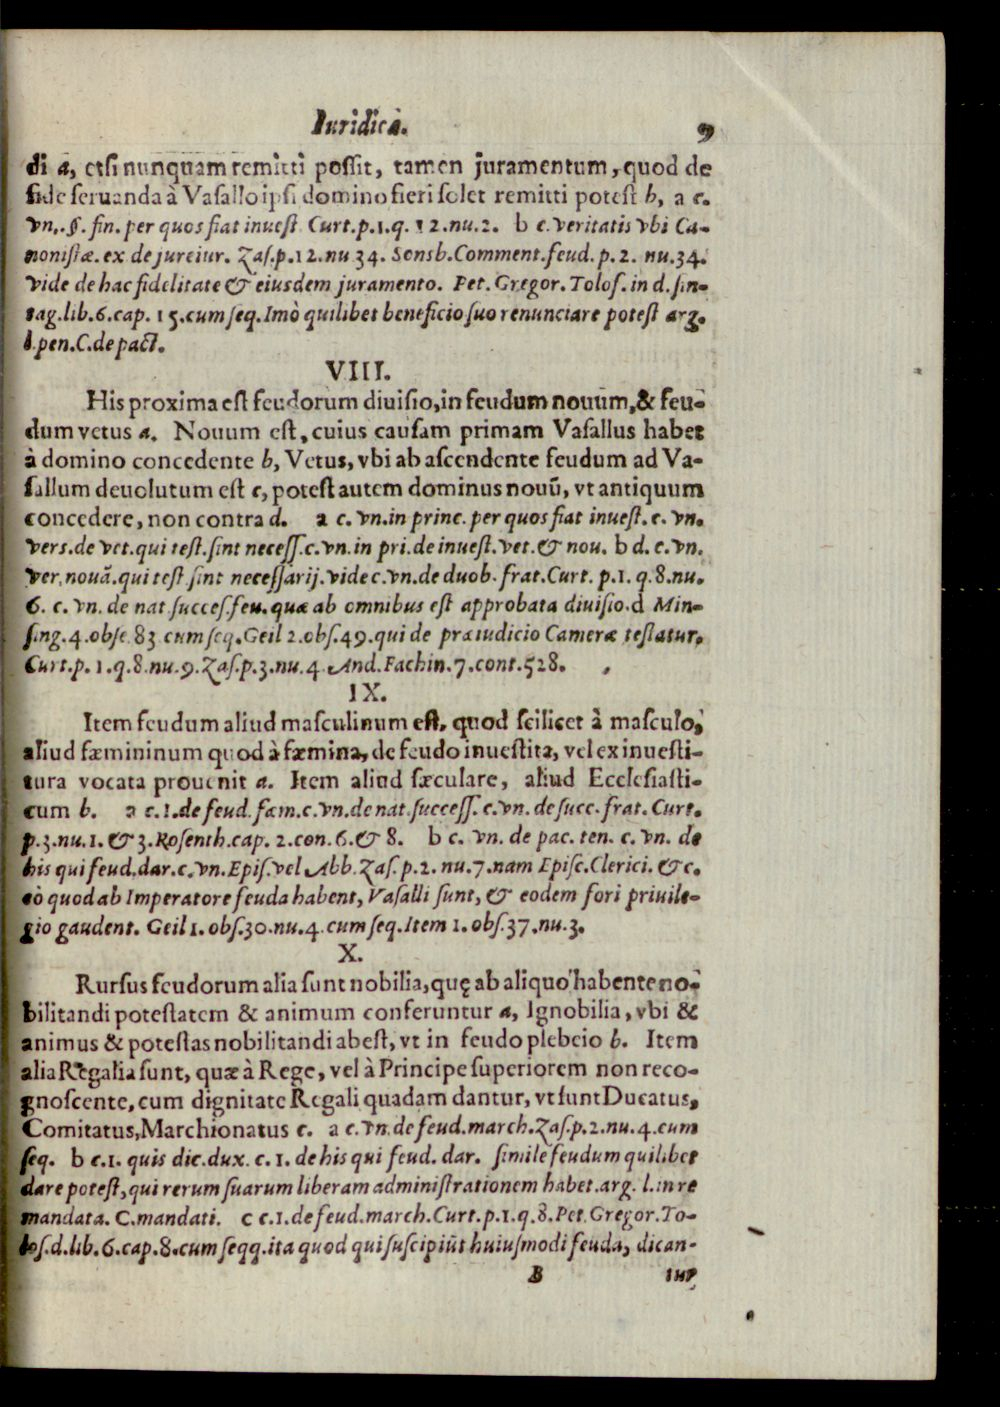 Iuridica. 9
di a, etsi nunquam remitti possit, tamen juramentum, quod de
fide seruanda à Vasallo ipsi domino fieri solet remitti potest b, a c.
vn,. §. fin. per quos fiat inuest Curt.p.1.q. 12.nu.2. b c. veritatis vbi Ca-
nonistæ. ex de jureiur. Zas.p.12.nu 34. Sonsb.Comment.feud.p.2. nu.34.
Vide de hac fidelitate & eiusdem juramento. Pet. Gregor. Tolos. in d. sin-
tag.lib.6.cap. 15.cum seq. Imò quilibet beneficio suo renunciare potest arg.
l.pen.C.de pact.
VIII.
His proxima est feudorum diuisio, in feudum nouum, & feu-
dum vetus a. Nouum est, cuius causam primam Vasallus habet
à domino concedente b, Vetus, vbi ab ascendente feudum ad Va-
sallum deuolutum est c, potest autem dominus nouū, vt antiquum
concedere, non contra d. a c. vn.in princ. per quos fiat inuest. c. vn.
vers.de vet.qui test.sint necess.c.vn.in pri.de inuest.vet.& nou. b d. c.vn.
ver, nouā.qui test sint necessarij. vide c.vn.de duob. frat.Curt. p.1. q.8.nu.
6. c. vn. de nat succes.feu. quæ ab omnibus est approbata diuisio. d Min-
sing.4.obse 83 cum seq. Geil 2.obs.49.qui de præiudicio Cameræ testatur.
Curt.p. 1.q.8.nu.9.Zas.p.3.nu.4 And.Fachin.7.cont.528.
IX.
Item feudum aliud masculinum est, quod scilicet à masculo,
aliud fæmininum quod à fæmina, de feudo inuestita, vel ex inuesti-
tura vocata prouenit a. Item aliud sæculare, aliud Ecclesiasti-
cum b. a c.1.de feud.fæm.c.vn.de nat.success.c.vn. de succ.frat. Curt.
p.3.nu.1. & 3.Rosenth.cap. 2.con.6.& 8. b c. vn. de pac. ten. c. vn. de
his qui feud.dar.c.vn.Epis.vel Abb.Zas.p.2. nu.7.nam Episc.Clerici. & c.
eò quod ab Imperatore feuda habent, Vasalli sunt, & eodem fori priuile-
gio gaudent. Geil 1.obs.30.nu.4 cum seq. Item 1.obs.37.nu.3.
X.
Rursus feudorum alia sunt nobilia, quę ab aliquo habente no-
bilitandi potestatem & animum conferuntur a, Ignobilia, vbi &
animus & potestas nobilitandi abest, vt in feudo plebeio b. Item
alia Regalia sunt, quæ à Rege, vel à Principe superiorem non reco-
gnoscente, cum dignitate Regali quadam dantur, vt sunt Ducatus,
Comitatus, Marchionatus c. a c.vn.de feud.march.Zas.p.2.nu.4.cum
seq. b c.1. quis dic.dux. c. 1. de his qui feud. dar. simile feudum quilibet
dare potest, qui rerum suarum liberam administrationem habet.arg. l.in re
mandata. C.mandati. c c.1.de feud.march.Curt.p.1.q.8.Pet.Gregor.To-
los.d.lib.6.cap.8.cum seqq.ita quod qui suscipiūt huiusmodi feuda, dican-
B tur